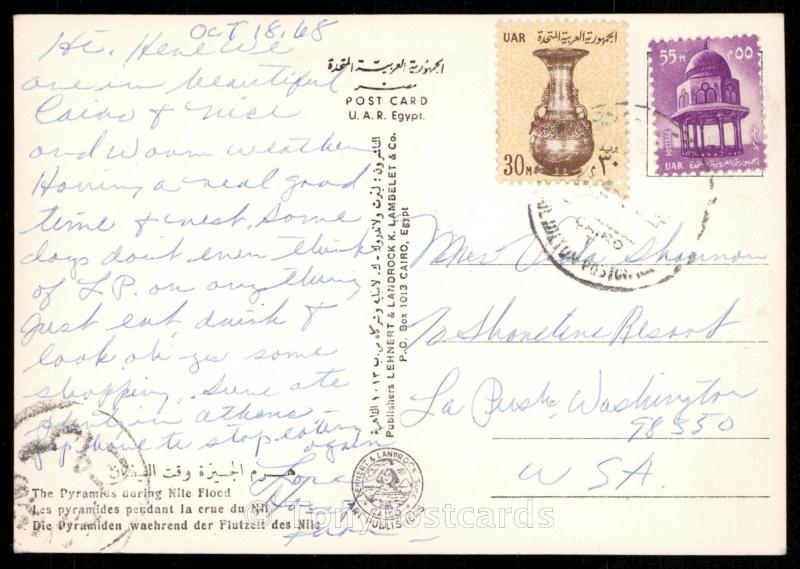 OCT 18, 68
Hi. Here we
are in beautiful
Cairo & nice
and warm weather
Having a real good
time & rest. Some
days don't even think
of L.P. or anything
just eat, drink &
look oh yes some
shopping. Sure ate
in athens -
have to stop eating
again
Love
الجمهورية العربية المتحدة
مصر
POST CARD
U. A. R. Egypt.
UAR الجمهورية العربية المتحدة
30 M ٣٠ م
55 M ٥٥
POSTAGE
UAR الجمهورية العربية المتحدة
CAIRO
Mrs Shannon
% Shoreline Resort
La Push, Washington
98350
U.S.A.
الناشرون : لينرت ولاندروك - ك. لامبليه وشركاه ص. ب ١٠١٣ القاهرة
Publishers LEHNERT & LANDROCK K. LAMBELET & Co.
P. O. Box 1013 CAIRO, Egypt
هرم الجيزة وقت الفيضان
The Pyramids during Nile Flood
Les pyramides pendant la crue du Nil
Die Pyramiden waehrend der Flutzeit des Nils
LEHNERT & LANDROCK SUCC.
CAIRO
ART PUBLISHERS
© Tony Postcards